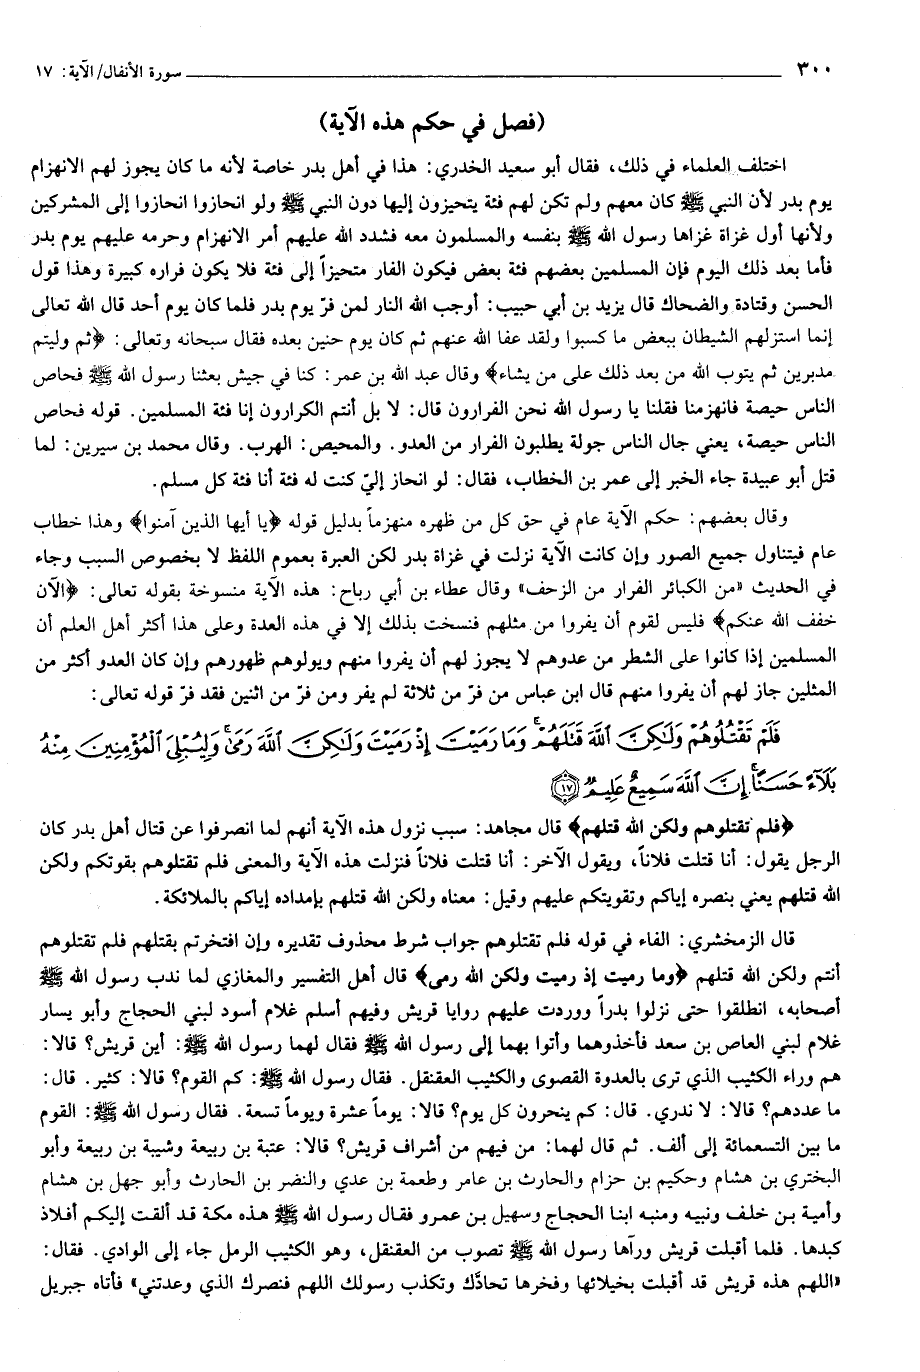 ٣٠٠ سورة الأنفال/ الآية: ١٧
(فصل في حكم هذه الآية)
اختلف العلماء في ذلك، فقال أبو سعيد الخدري: هذا في أهل بدر خاصة لأنه ما كان يجوز لهم الانهزام
يوم بدر لأن النبي ﷺ كان معهم ولم تكن لهم فئة يتحيزون إليها دون النبي ﷺ ولو انحازوا انحازوا إلى المشركين
ولأنها أول غزاة غزاها رسول الله ﷺ بنفسه والمسلمون معه فشدد الله عليهم أمر الانهزام وحرمه عليهم يوم بدر
فأما بعد ذلك اليوم فإن المسلمين بعضهم فئة بعض فيكون الفار متحيزاً إلى فئة فلا يكون فراره كبيرة وهذا قول
الحسن وقتادة والضحاك قال يزيد بن أبي حبيب: أوجب الله النار لمن فرّ يوم بدر فلما كان يوم أحد قال الله تعالى
إنما استزلهم الشيطان ببعض ما كسبوا ولقد عفا الله عنهم ثم كان يوم حنين بعده فقال سبحانه وتعالى: ﴿ثم وليتم
مدبرين ثم يتوب الله من بعد ذلك على من يشاء﴾ وقال عبد الله بن عمر: كنا في جيش بعثنا رسول الله ﷺ فحاص
الناس حيصة فانهزمنا فقلنا يا رسول الله نحن الفرارون قال: لا بل أنتم الكرارون إنا فئة المسلمين. قوله فحاص
الناس حيصة، يعني جال الناس جولة يطلبون الفرار من العدو. والمحيص: الهرب. وقال محمد بن سيرين: لما
قتل أبو عبيدة جاء الخبر إلى عمر بن الخطاب، فقال: لو انحاز إليّ كنت له فئة أنا فئة كل مسلم.
وقال بعضهم: حكم الآية عام في حق كل من ظهره منهزماً بدليل قوله ﴿يا أيها الذين آمنوا﴾ وهذا خطاب
عام فيتناول جميع الصور وإن كانت الآية نزلت في غزاة بدر لكن العبرة بعموم اللفظ لا بخصوص السبب وجاء
في الحديث «من الكبائر الفرار من الزحف» وقال عطاء بن أبي رباح: هذه الآية منسوخة بقوله تعالى: ﴿الآن
خفف الله عنكم﴾ فليس لقوم أن يفروا من مثلهم فنسخت بذلك إلا في هذه العدة وعلى هذا أكثر أهل العلم أن
المسلمين إذا كانوا على الشطر من عدوهم لا يجوز لهم أن يفروا منهم ويولوهم ظهورهم وإن كان العدو أكثر من
المثلين جاز لهم أن يفروا منهم قال ابن عباس من فرّ من ثلاثة لم يفر ومن فرّ من اثنين فقد فرّ قوله تعالى:
فَلَمْ تَقْتُلُوهُمْ وَلَٰكِنَّ اللَّهَ قَتَلَهُمْ ۚ وَمَا رَمَيْتَ إِذْ رَمَيْتَ وَلَٰكِنَّ اللَّهَ رَمَىٰ ۚ وَلِيُبْلِيَ الْمُؤْمِنِينَ مِنْهُ
بَلَاءً حَسَنًا ۚ إِنَّ اللَّهَ سَمِيعٌ عَلِيمٌ ﴿١٧﴾
﴿فلم تقتلوهم ولكن الله قتلهم﴾ قال مجاهد: سبب نزول هذه الآية أنهم لما انصرفوا عن قتال أهل بدر كان
الرجل يقول: أنا قتلت فلاناً، ويقول الآخر: أنا قتلت فلاناً فنزلت هذه الآية والمعنى فلم تقتلوهم بقوتكم ولكن
الله قتلهم يعني بنصره إياكم وتقويتكم عليهم وقيل: معناه ولكن الله قتلهم بإمداده إياكم بالملائكة.
قال الزمخشري: الفاء في قوله فلم تقتلوهم جواب شرط محذوف تقديره وإن افتخرتم بقتلهم فلم تقتلوهم
أنتم ولكن الله قتلهم ﴿وما رميت إذ رميت ولكن الله رمى﴾ قال أهل التفسير والمغازي لما ندب رسول الله ﷺ
أصحابه، انطلقوا حتى نزلوا بدراً ووردت عليهم روايا قريش وفيهم أسلم غلام أسود لبني الحجاج وأبو يسار
غلام لبني العاص بن سعد فأخذوهما وأتوا بهما إلى رسول الله ﷺ فقال لهما رسول الله ﷺ: أين قريش؟ قالا:
هم وراء الكثيب الذي ترى بالعدوة القصوى والكثيب العقنقل. فقال رسول الله ﷺ: كم القوم؟ قالا: كثير. قال:
ما عددهم؟ قالا: لا ندري. قال: كم ينحرون كل يوم؟ قالا: يوماً عشرة ويوماً تسعة. فقال رسول الله ﷺ: القوم
ما بين التسعمائة إلى ألف. ثم قال لهما: من فيهم من أشراف قريش؟ قالا: عتبة بن ربيعة وشيبة بن ربيعة وأبو
البختري بن هشام وحكيم بن حزام والحارث بن عامر وطعمة بن عدي والنضر بن الحارث وأبو جهل بن هشام
وأمية بن خلف ونبيه ومنبه ابنا الحجاج وسهيل بن عمرو فقال رسول الله ﷺ هذه مكة قد ألقت إليكم أفلاذ
كبدها. فلما أقبلت قريش ورآها رسول الله ﷺ تصوب من العقنقل، وهو الكثيب الرمل جاء إلى الوادي. فقال:
«اللهم هذه قريش قد أقبلت بخيلائها وفخرها تحادّك وتكذب رسولك اللهم فنصرك الذي وعدتني» فأتاه جبريل